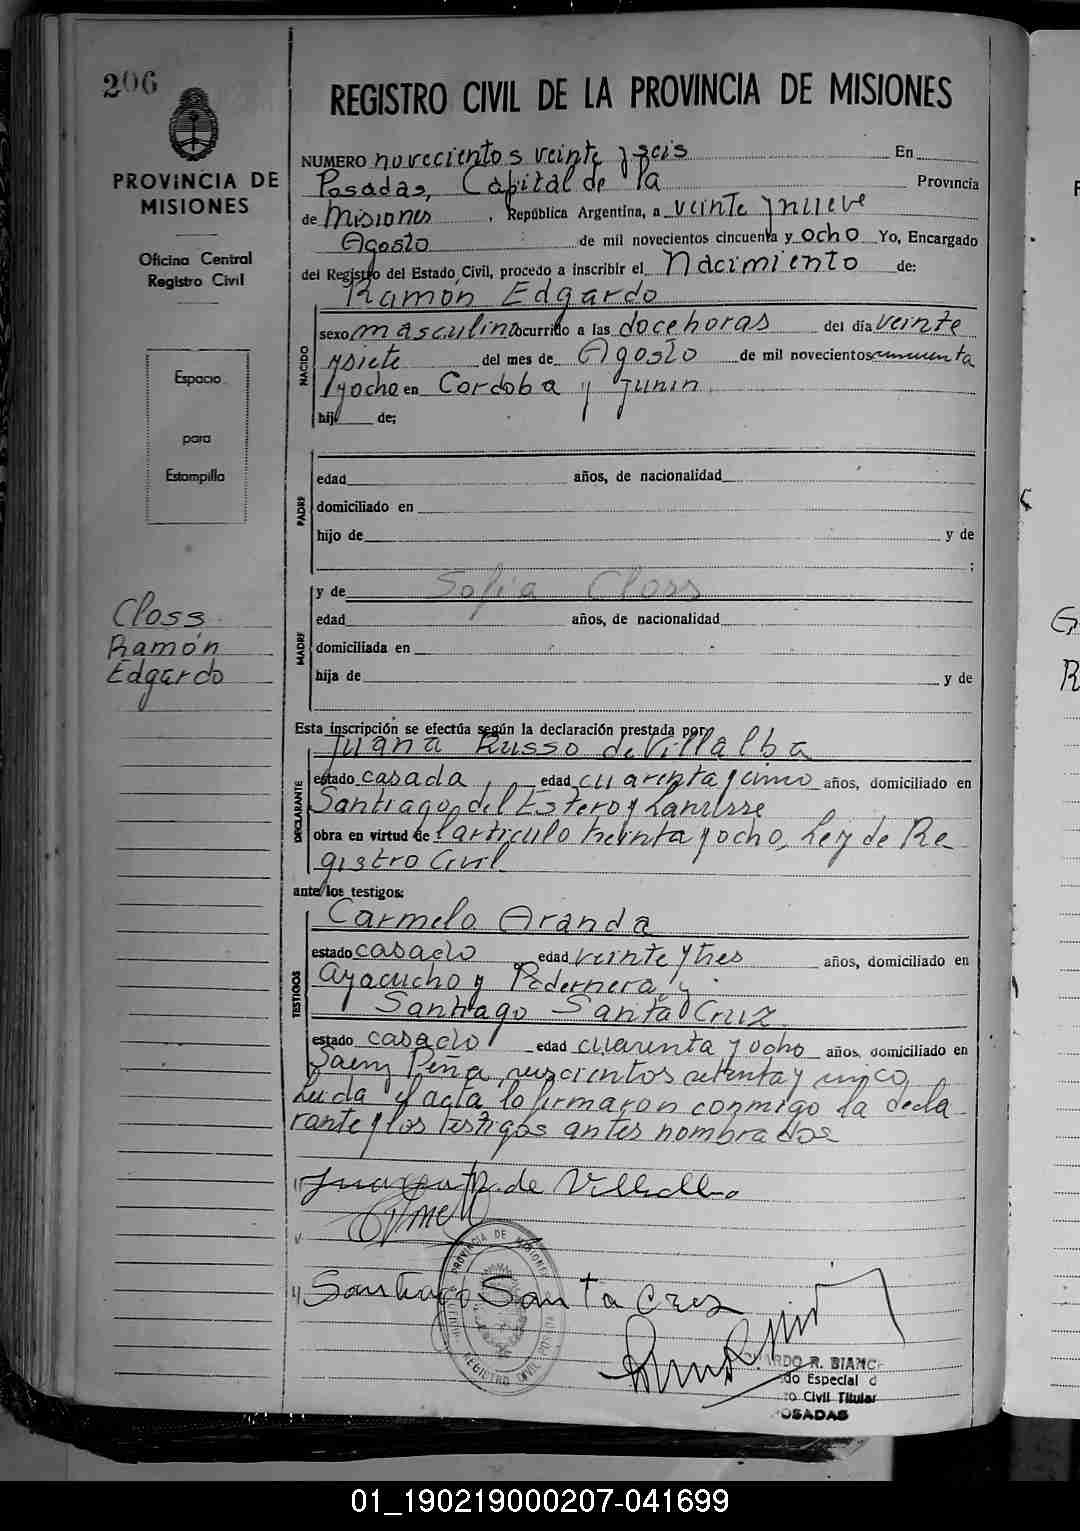 206
PROVINCIA DE
MISIONES
Oficina Central
Registro Civil
Espacio
para
Estampilla
Closs
Ramón
Edgardo
REGISTRO CIVIL DE LA PROVINCIA DE MISIONES
NUMERO novecientos veinte y seis En
Posadas, Capital de la Provincia
de Misiones, República Argentina, a veinte y nueve
Agosto de mil novecientos cincuenta y ocho Yo, Encargado
del Registro del Estado Civil, procedo a inscribir el Nacimiento de:
Ramón Edgardo
NACIDO
sexo masculino ocurrido a las doce horas del día veinte
y siete del mes de Agosto de mil novecientos cincuenta
y ocho en Cordoba y Junin
hij de;
PADRE
edad años, de nacionalidad
domiciliado en
hijo de y de
;
MADRE
y de Sofia Closs
edad años, de nacionalidad
domiciliada en
hija de y de
Esta inscripción se efectúa según la declaración prestada por
DECLARANTE
Juana Russo de Villalba
estado casada, edad cuarenta y cinco años, domiciliado en
Santiago del Estero y Lanusse
obra en virtud de l articulo treinta y ocho, Ley de Re
gistro Civil
ante los testigos:
TESTIGOS
Carmelo Aranda
estado casado edad veinte y tres años, domiciliado en
Ayacucho y Pedernera, y
Santiago Santa Cruz
estado casado edad cuarenta y ocho años, domiciliado en
Saenz Peña, setenta y
Leida el acta lo firmaron conmigo la decla
rante y los testigos antes nombrados
R. de Villalba
Santiago Santa Cruz
PROVINCIA DE MISIONES
REGISTRO CIVIL POSADAS
ARDO R. BIANC
do Especial d
o Civil Titular
POSADAS
01_190219000207-041699